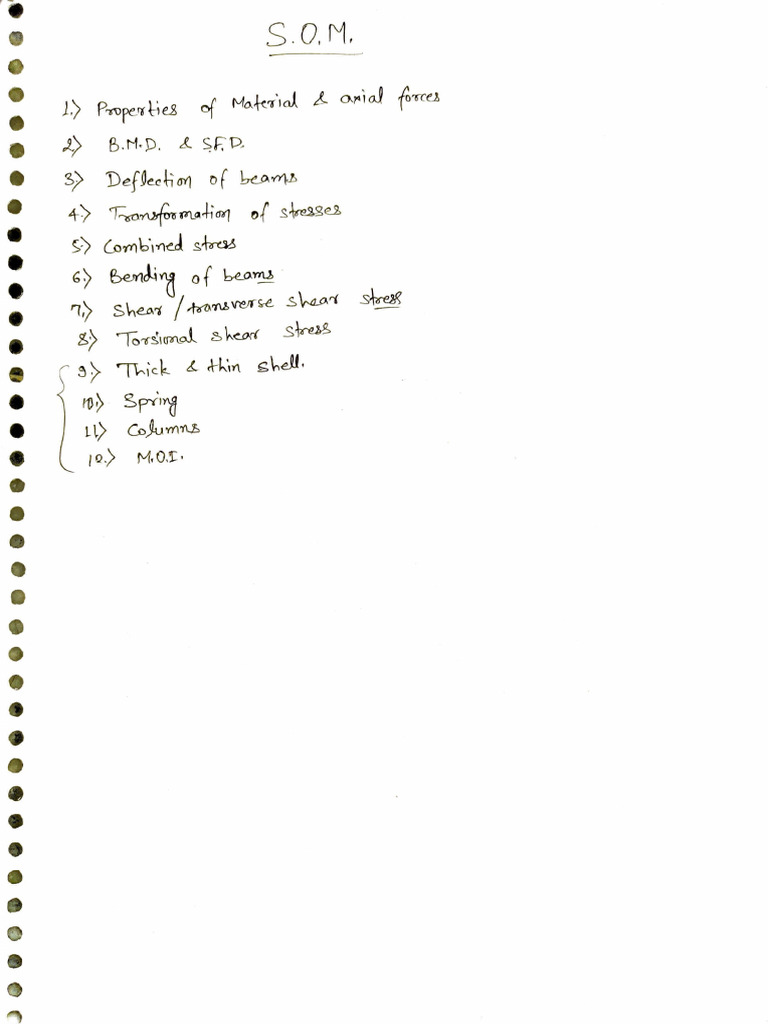 S.O.M.
1.) Properties of Material & axial forces
2.) B.M.D. & S.F.D.
3.) Deflection of beams
4.) Transformation of stresses
5.) Combined stress
6.) Bending of beams
7.) Shear / transverse shear stress
8.) Torsional shear stress
9.) Thick & thin shell.
10.) Spring
11.) Columns
12.) M.O.I.